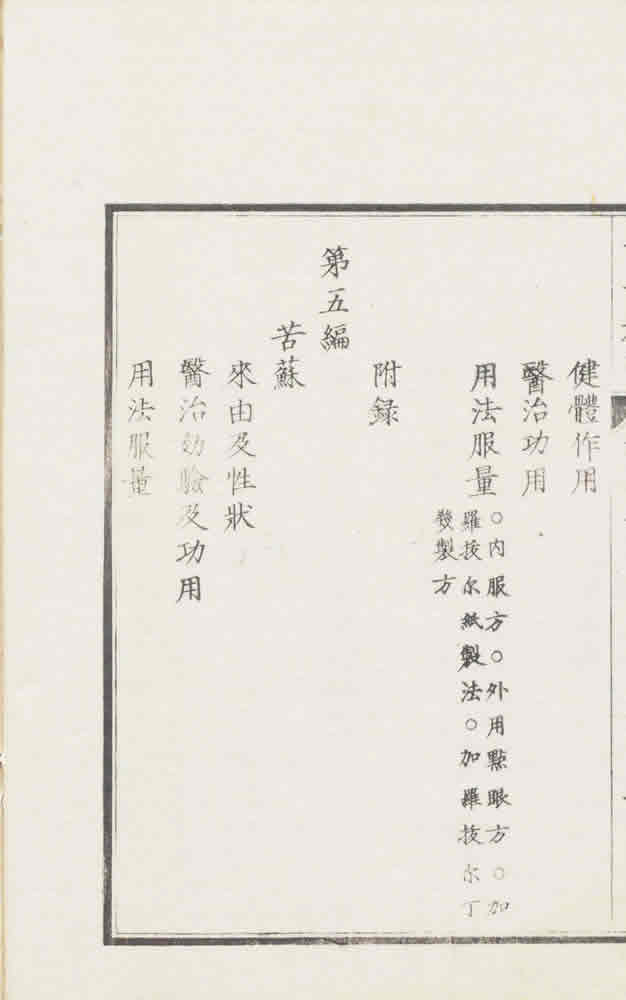 健體作用
醫治功用
用法服量
○内服方○外用點眼方○加
羅抜尓紙製法○加羅抜尓丁
幾製方
附録
第五編
苦蘇
來由及性狀
醫治効驗及功用
用法服量